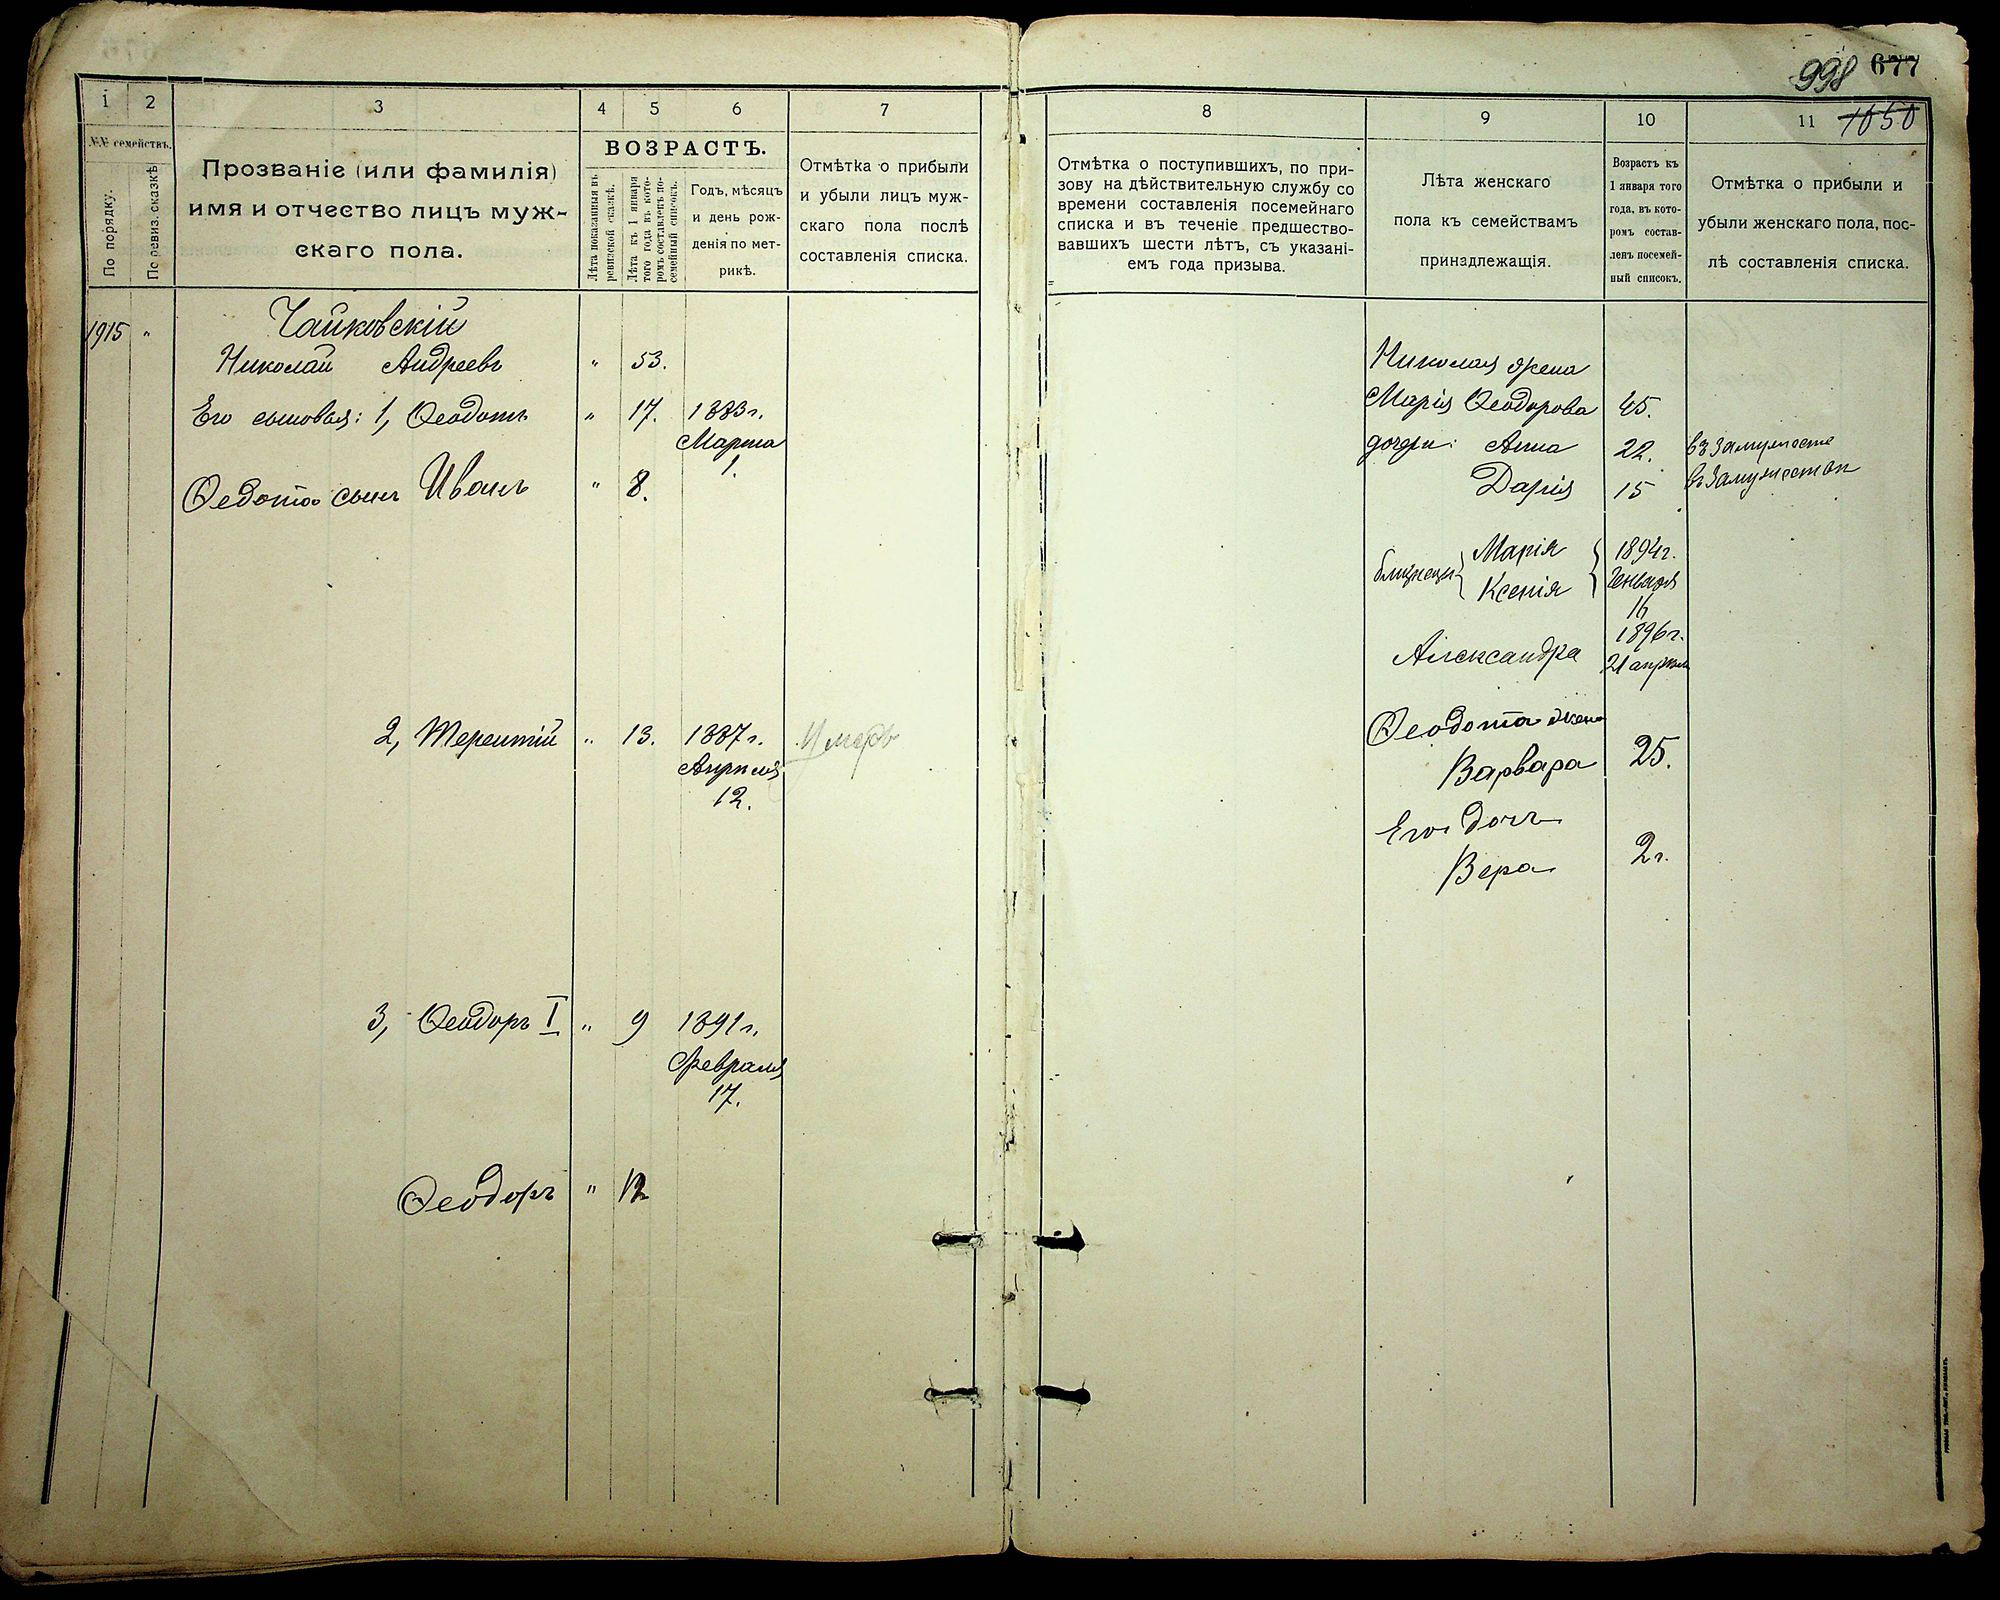 998 677
1050
1 2 3 4 5 6 7
№№ семействъ.
По порядку.
По ревиз. сказкѣ
Прозваніе (или фамилія)
имя и отчество лицъ муж-
скаго пола.
ВОЗРАСТЪ.
Лѣта показанныя въ
ревизской сказкѣ.
Лѣта къ 1 января
того года въ кото-
ромъ составленъ по-
семейный списокъ.
Годъ, мѣсяцъ
и день рож-
денія по мет-
рикѣ.
Отмѣтка о прибыли
и убыли лицъ муж-
скаго пола послѣ
составленія списка.
1915 „ Чайковскій
Николай Андреевъ „ 53.
Его сыновья: 1, Ѳеодотъ „ 17. 1883 г.
Марта
1.
Ѳедота сынъ Иванъ „ 8.
2, Терентій „ 13. 1887 г. Умеръ
Апрѣля
12.
3, Ѳеодоръ I „ 9 1891 г.
Февраля
17.
Ѳеодоръ „ 12
8 9 10 11
Отмѣтка о поступившихъ, по при-
зову на дѣйствительную службу со
времени составленія посемейнаго
списка и въ теченіе предшество-
вавшихъ шести лѣтъ, съ указані-
емъ года призыва.
Лѣта женскаго
пола къ семействамъ
принадлежащія.
Возрастъ къ
1 января того
года, въ кото-
ромъ состав-
ленъ посемей-
ный списокъ.
Отмѣтка о прибыли и
убыли женскаго пола, пос-
лѣ составленія списка.
Николая жена
Марія Ѳеодорова 45.
дочери: Анна 22. въ замужестве
Дарія 15 въ замужестве
близнецы Марія 1894 г.
Ксенія Генваря
16
Александра 1896 г.
21 апрѣля
Ѳеодота жена
Варвара 25.
Его дочь
Вера 2 г.